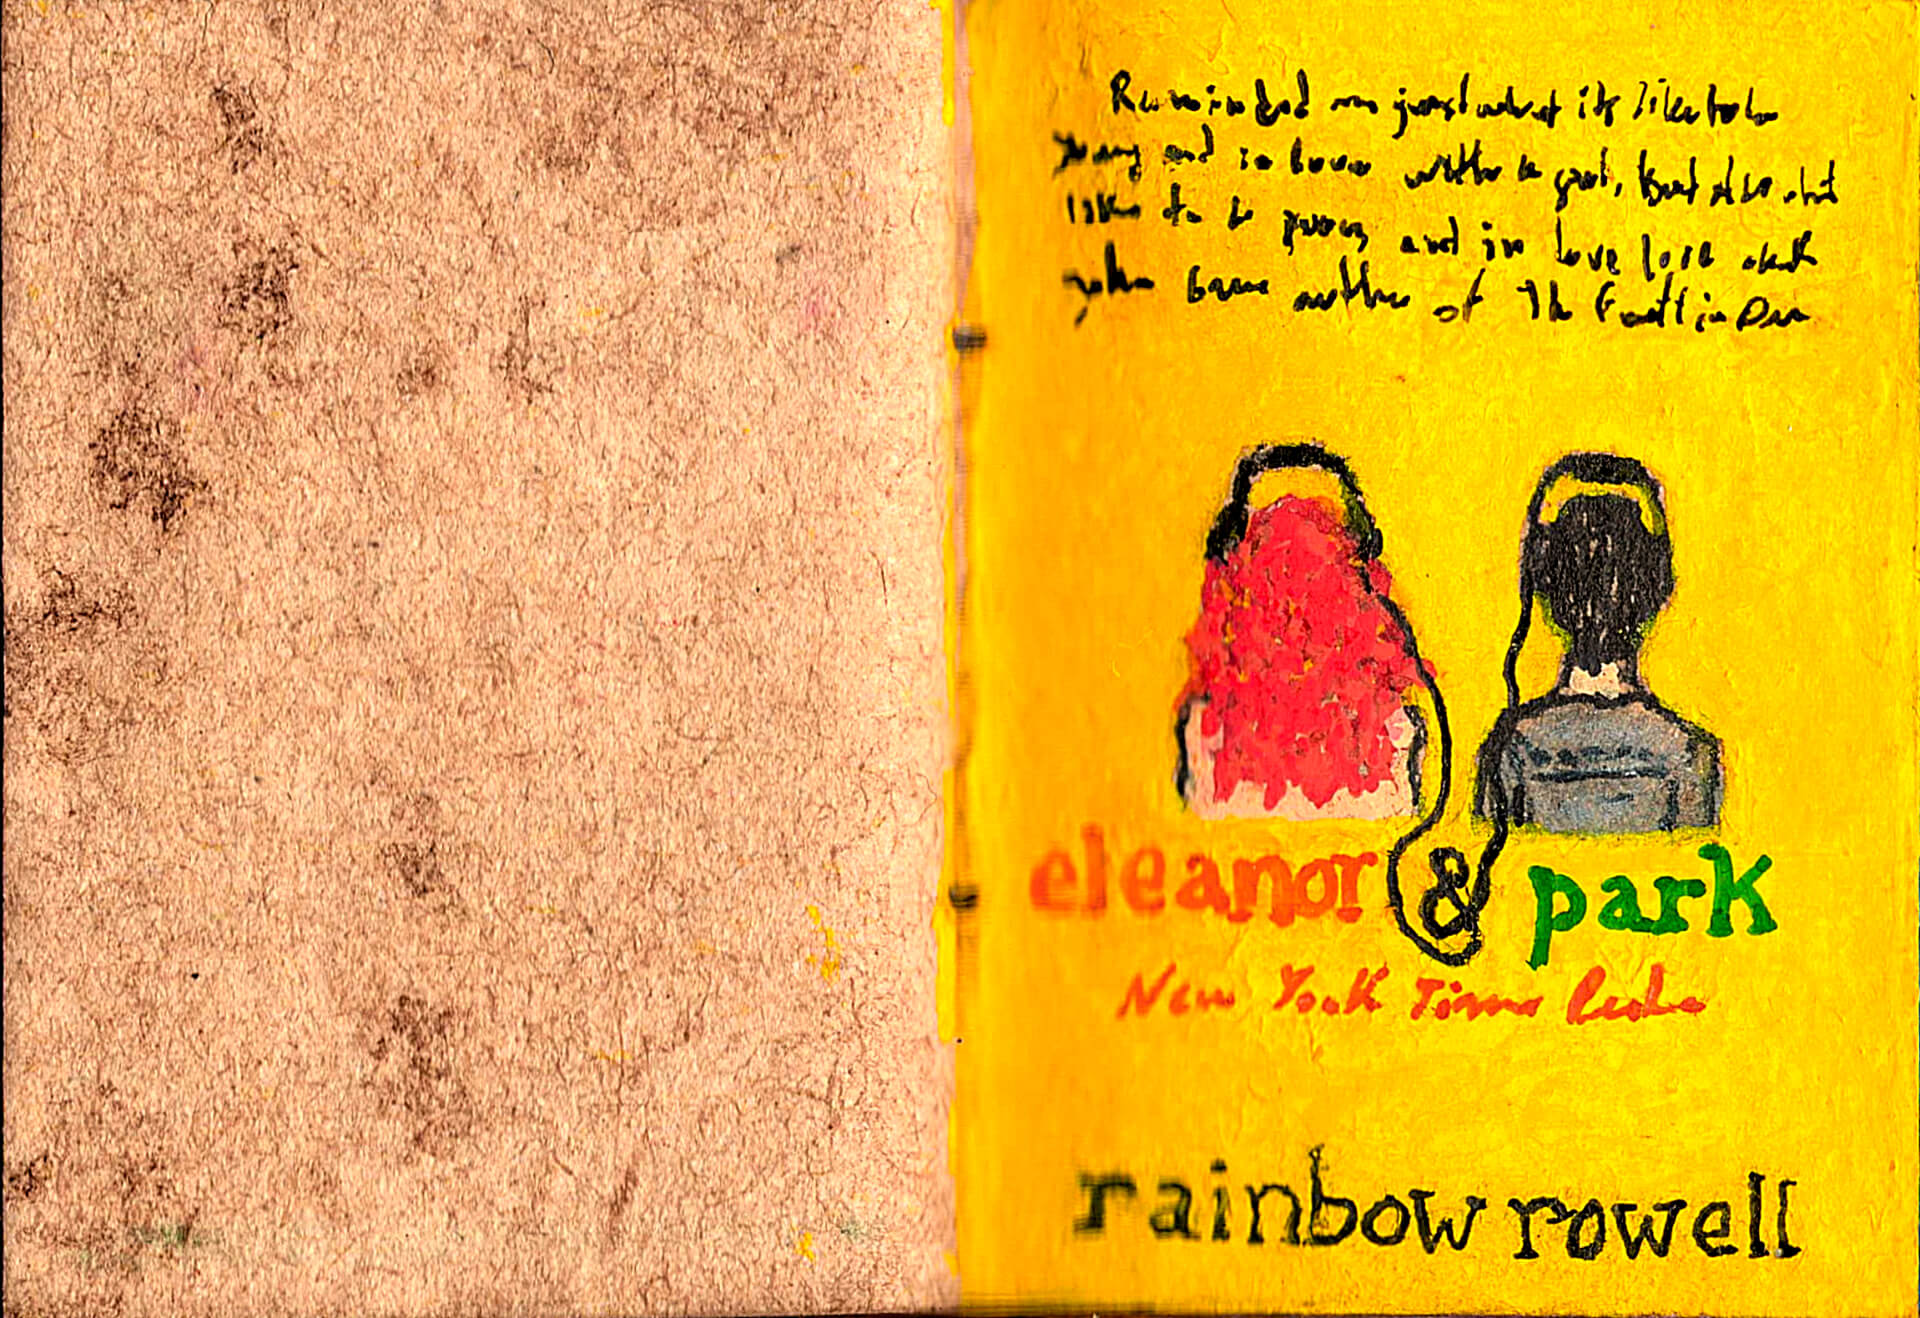 Reminded me just what its like to be
young and in love with a girl, but also what
like to be young and in love love with
John Green author of The Fault in Our
eleanor & park
New York Times
rainbow rowell